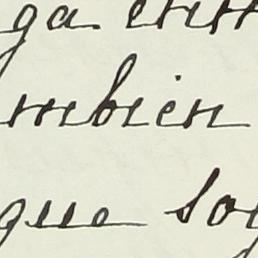 ga
mbien
que so